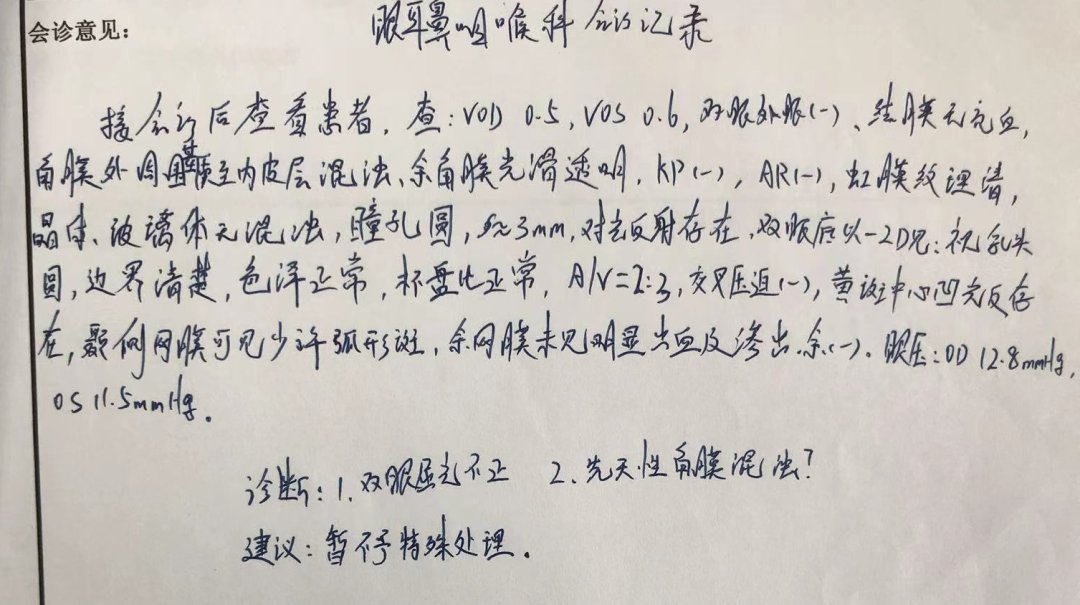 会诊意见：
眼耳鼻咽喉科会诊记录
接会诊后查看患者，查：VOD 0.5，VOS 0.6，双眼外眼(-)、结膜无充血，
角膜外周基质至内皮层混浊、余角膜光滑透明，KP(-)，AR(-)，虹膜纹理清，
晶体、玻璃体无混浊，瞳孔圆，约3mm，对光反射存在，双眼底以-2D见：视乳头
圆，边界清楚，色泽正常，杯盘比正常，A/V=2:3，交叉压迫(-)，黄斑中心凹光反存
在，颞侧网膜可见少许弧形斑，余网膜未见明显出血及渗出。余(-)。眼压：OD 12.8mmHg，
OS 11.5mmHg。
诊断：1.双眼屈光不正 2.先天性角膜混浊？
建议：暂不予特殊处理．